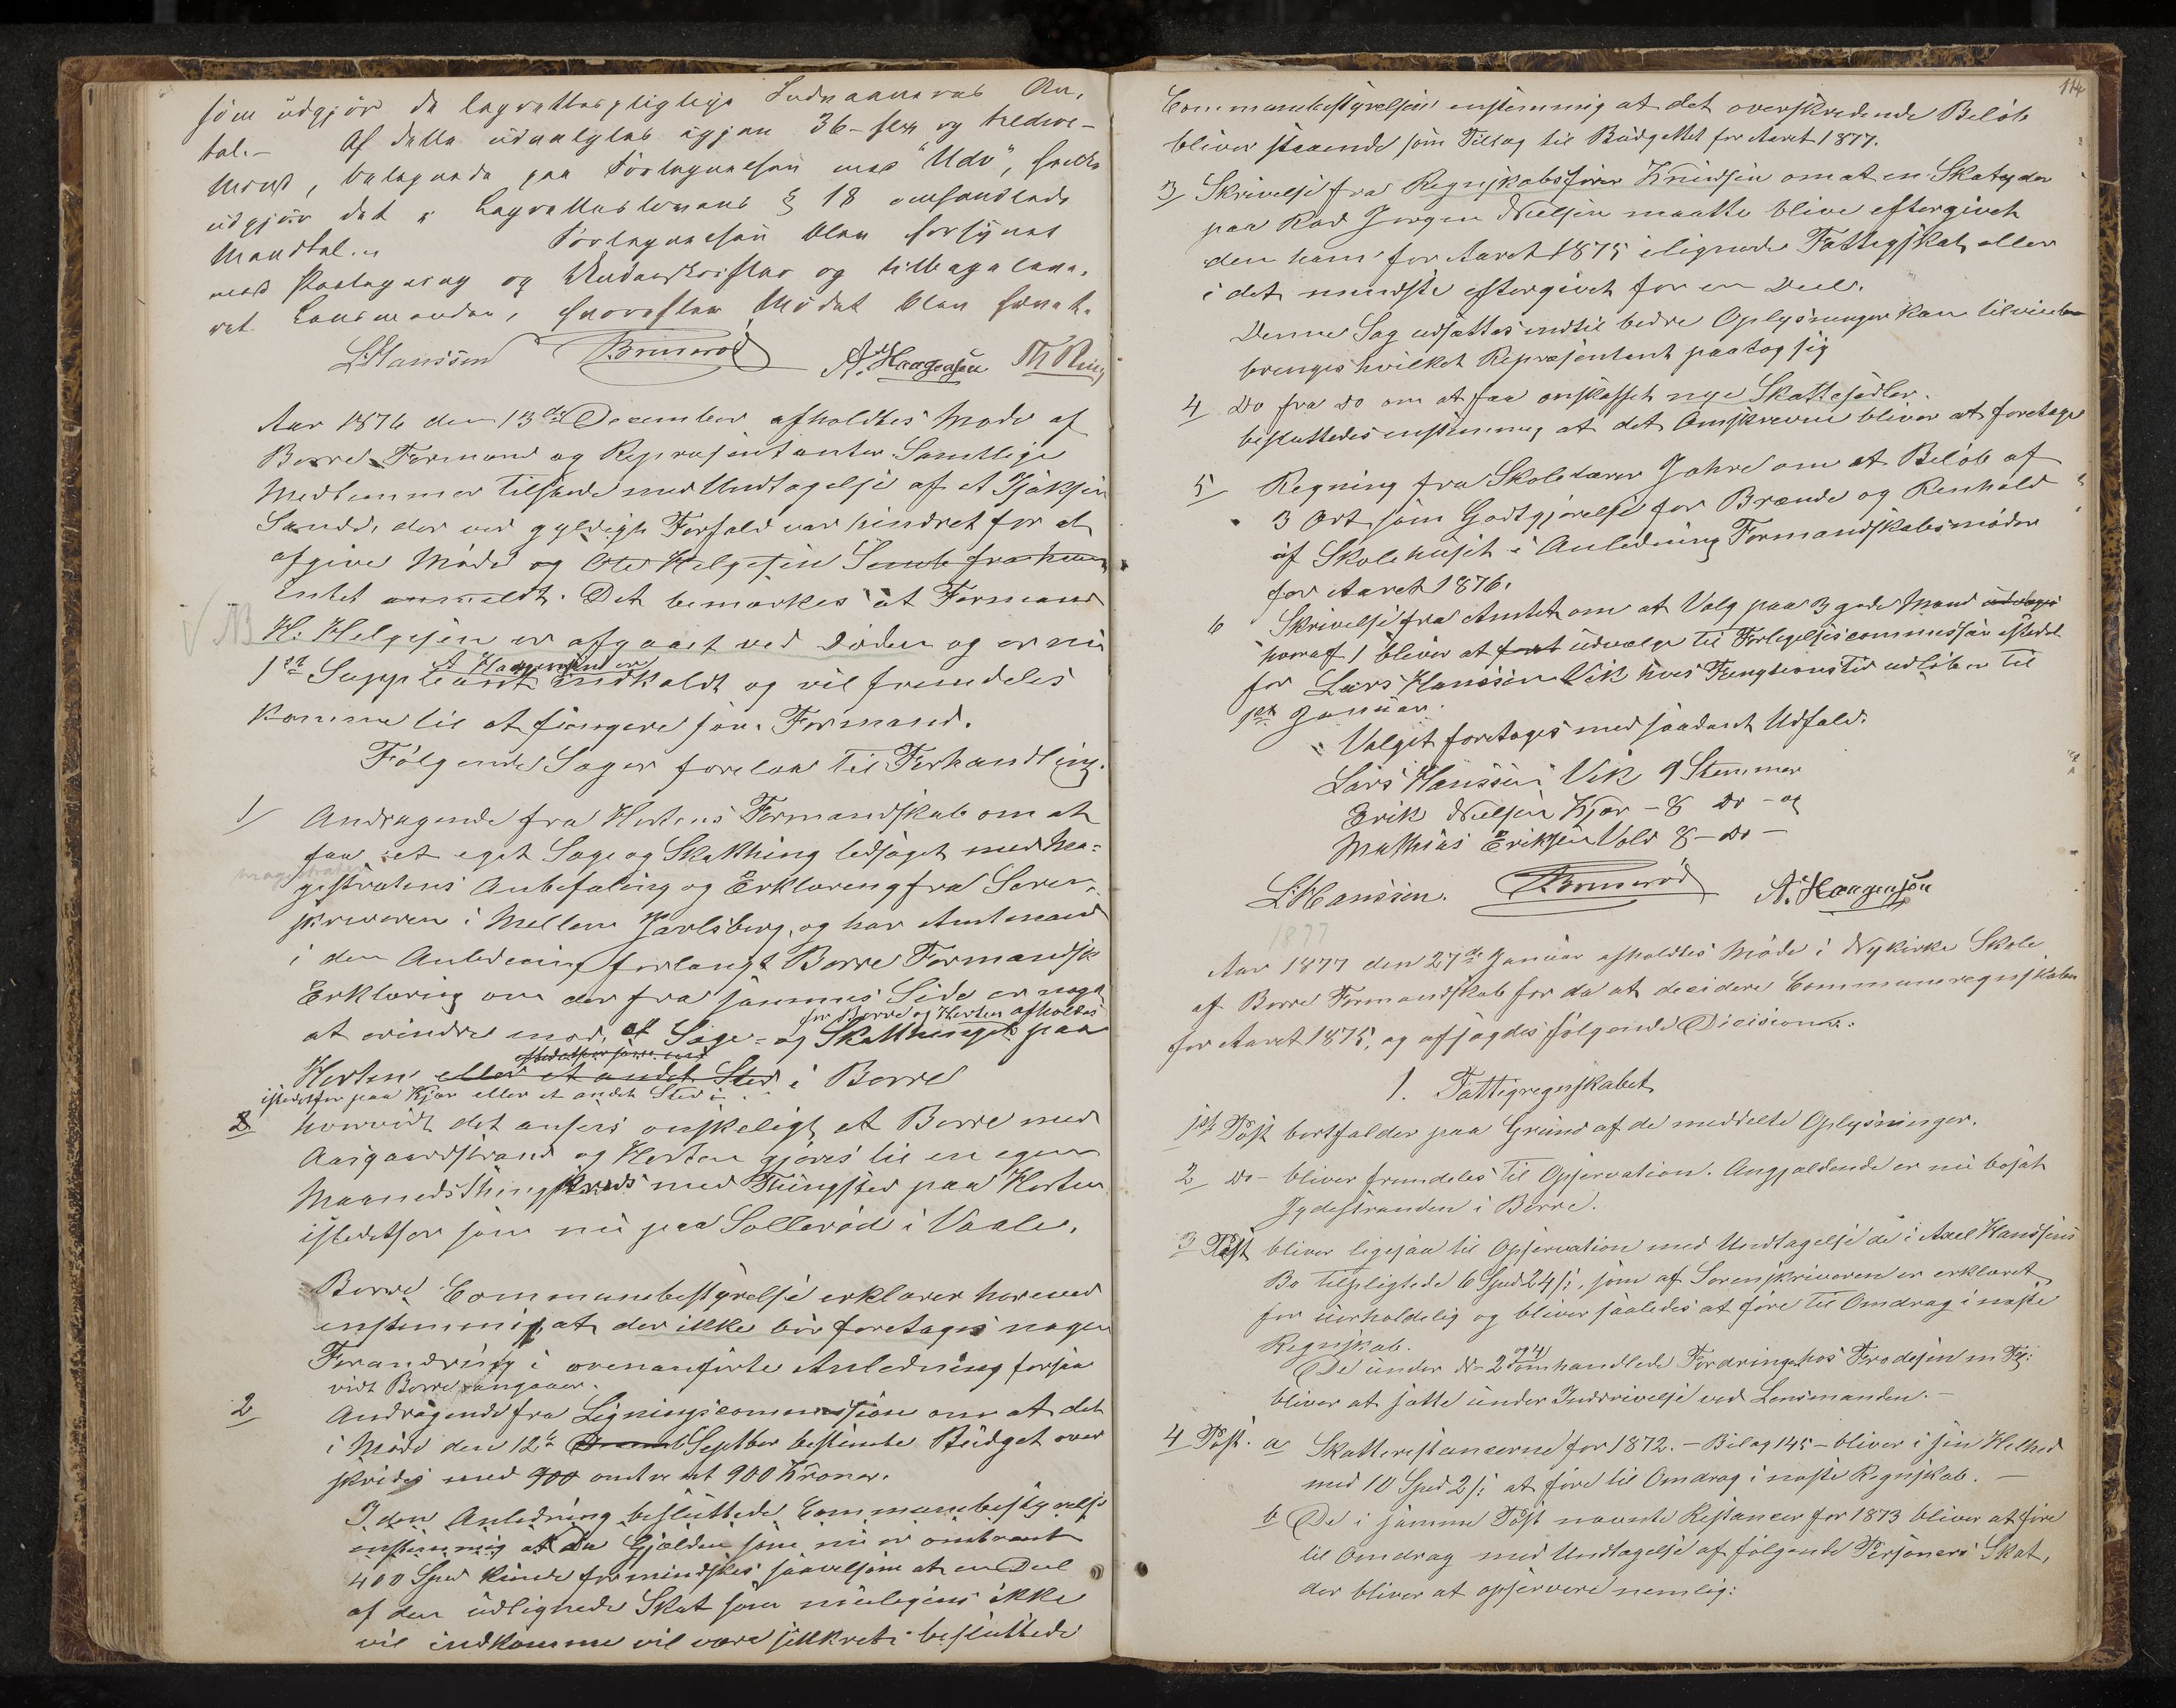 som udgjør de lagrettespligtige Indvaaneres An-
tal.- Af dette udvalgtes igjen 36 - sex og tredive -
Mænd, betegnede paa Fortegnelsen med "Udv", hvilke
udgjør det i Lagretteslovens § 18 omhandlede
Mandtal.
Fortegnelsen blev forsynet
med Paategning og Underskrifter og tilbageleve-
ret Lensmanden, hvorefter Mødet blev hævet.
L. Hanssen A. Haagensen
Aar 1876 den 13de December afholdtes Møde af
Borre Formænd og Repræsentanter. Samtlige
Medlemmer tilstede med Undtagelse af
der ved gyldigt Forfald var hindret for at
afgive Møde og Ole Helgesen
intet anmeldt. Det bemærkes at Formand
NB H. Helgesen er afgaaet ved Døden og er nu
A Haagensen er
1ste Suppleant indkaldt og vil fremdeles
komme til at fungere som Formand.
Følgende Sager forelaa til Forhandling.
1/ Andragende fra Hortens Formandskab om at
faa et eget Sage og Skatthing ledsaget med Ma=
gistratens Anbefaling og Erklæring fra Soren-
skriveren i Mellem Jarlsberg, og har Amtmand
i den Anledning forlangt Borre Formandsk
Erklæring om der fra sammes Side er noget
for Borre og Horten afholdes
at erindre mod, at Sage- og Skatthinget paa
Horten eller et andet Sted i Borre
istedetfor paa Kjær eller et andet Sted i
2 hvorvidt det ansees ønskeligt at Borre med
Aasgaardstrand og Horten gjøres til en egen
Maanedsthingkreds med Thingsted paa Horten
istedetfor som nu paa Sollerød i Vaale.
Borre Communebestyrelse erklærer herved
enstemmig, at der ikke bør foretages nogen
Forandring i ovenanførte Anledning forsaa
vidt Borre angaaer.
2 Andragende fra Ligningscommission om at det
i Møde den 12te Septber bestemte Budget over
skrides med 900 omtrent 900 Kroner.
I den Anledning besluttede Communebestyrelse
enstemmig at da Gjælden som nu er omtrent
400 Spd kunde formindskes saavelsom at en Deel
af den udlignede Skat som muligens ikke
vil indkomme vil være sikkret besluttede
114
Communebestyrelsen enstemmig at det overskredende Beløb
bliver staaende som Tillæg til Budgettet for Aaret 1877.
3/ Skrivelse fra Regnskabsfører Knudsen om at en Skatyder
paa Rød Jørgen Nielsen maatte blive eftergivet
den ham for Aaret 1875 ilignede Fattigskat eller
i det mindste eftergivet for en Deel.
Denne Sag udsættes indtil bedre Oplysninger kan tilveie-
bringes hvilket Repræsentant paatog sig
4 Do fra Do om at faa anskaffet nye Skattesedler.
besluttedes enstemmig at det Omskrevne bliver at foretage
5/ Regning fra Skolelærer Jahre om et Beløb af
3 Ort som Godtgjørelse for Brænde og Renhold
af Skolehuset i Anledning Formandskabsmøder
for Aaret 1876.
6 Skrivelse fra Amtet om at Valg paa 3 gode Mænd udvalges
hvoraf 1 bliver at udvælge til Forligelsescommissær istedet
for Lars Hanssen Vik hvis Fungtionstid udløber til
1ste Januar.
Valget foretages med saadant Udfald:
Lars Hanssen Vik 9 Stemmer
Erik Nielsen Kjær - 8 Do - og
Mathias Eriksen Vold 8 - Do -
L. Hanssen. A. Haagensen
1877
Aar 1877 den 27de Januar afholdtes Møde i Nykirke Skole
af Borre Formandskab for da at decidere Communeregnskaber
for Aaret 1875, og afsagdes følgende Decisioner:
1. Fattigregnskabet
1ste Post bortfalder paa Grund af de meddelte Oplysninger.
2 Do - bliver fremdeles til Opservation. Angjældende er nu bosat
Jydestranden i Borre.
3 Post bliver ligesaa til Opservation med Undtagelse de i Axel Handsens
Bo tilpligtede 6 Spd 24 s, som af Sorenskriveren er erklæret
for uerholdelig og bliver saaledes at føre til Omdrag i næste
Regnskab.
De under No 2 omhandlede Fordringer hos Frodesen m Fl:
bliver at sætte under Inddrivelse ved Lensmanden. -
4 Post. a Skatterestancerne for 1872. - Bilag 145 - bliver i sin Helhed
med 10 Spd 2 s: at føre til Omdrag i næste Regnskab. -
b De i samme Post nævnte Restancer for 1873 bliver at føre
til Omdrag med Undtagelse af følgende Personers Skat,
der bliver at opservere nemlig: